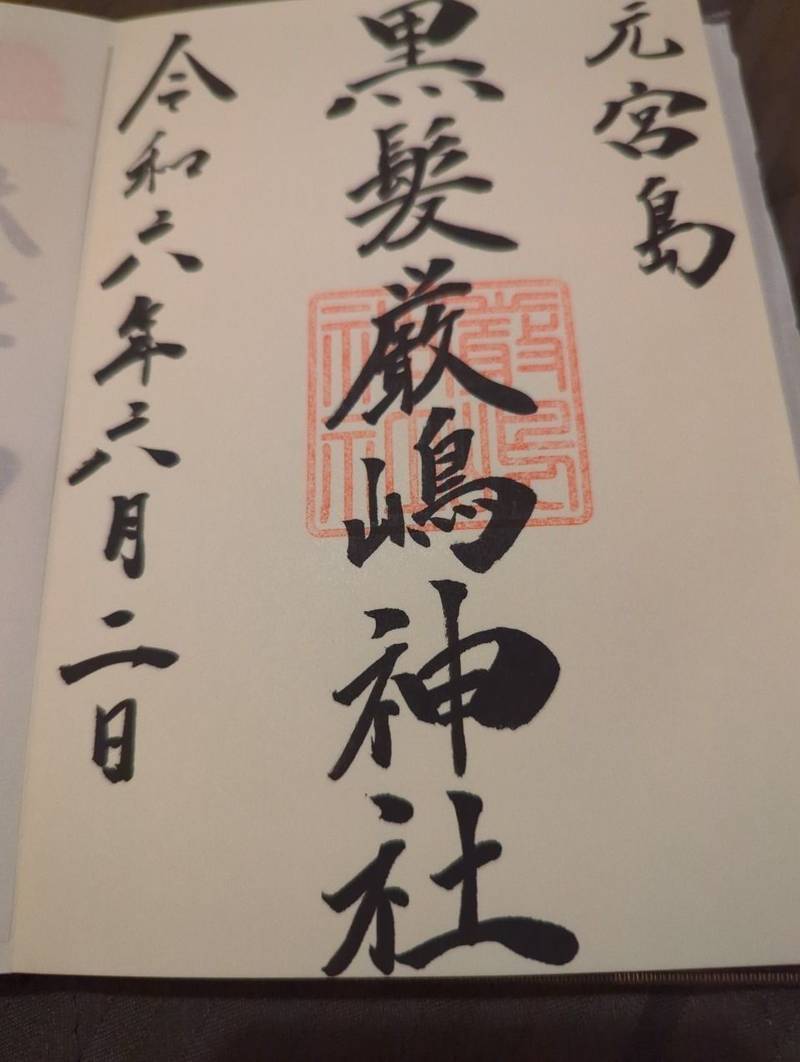 元宮島
黒髪厳嶋神社
令和六年六月二日